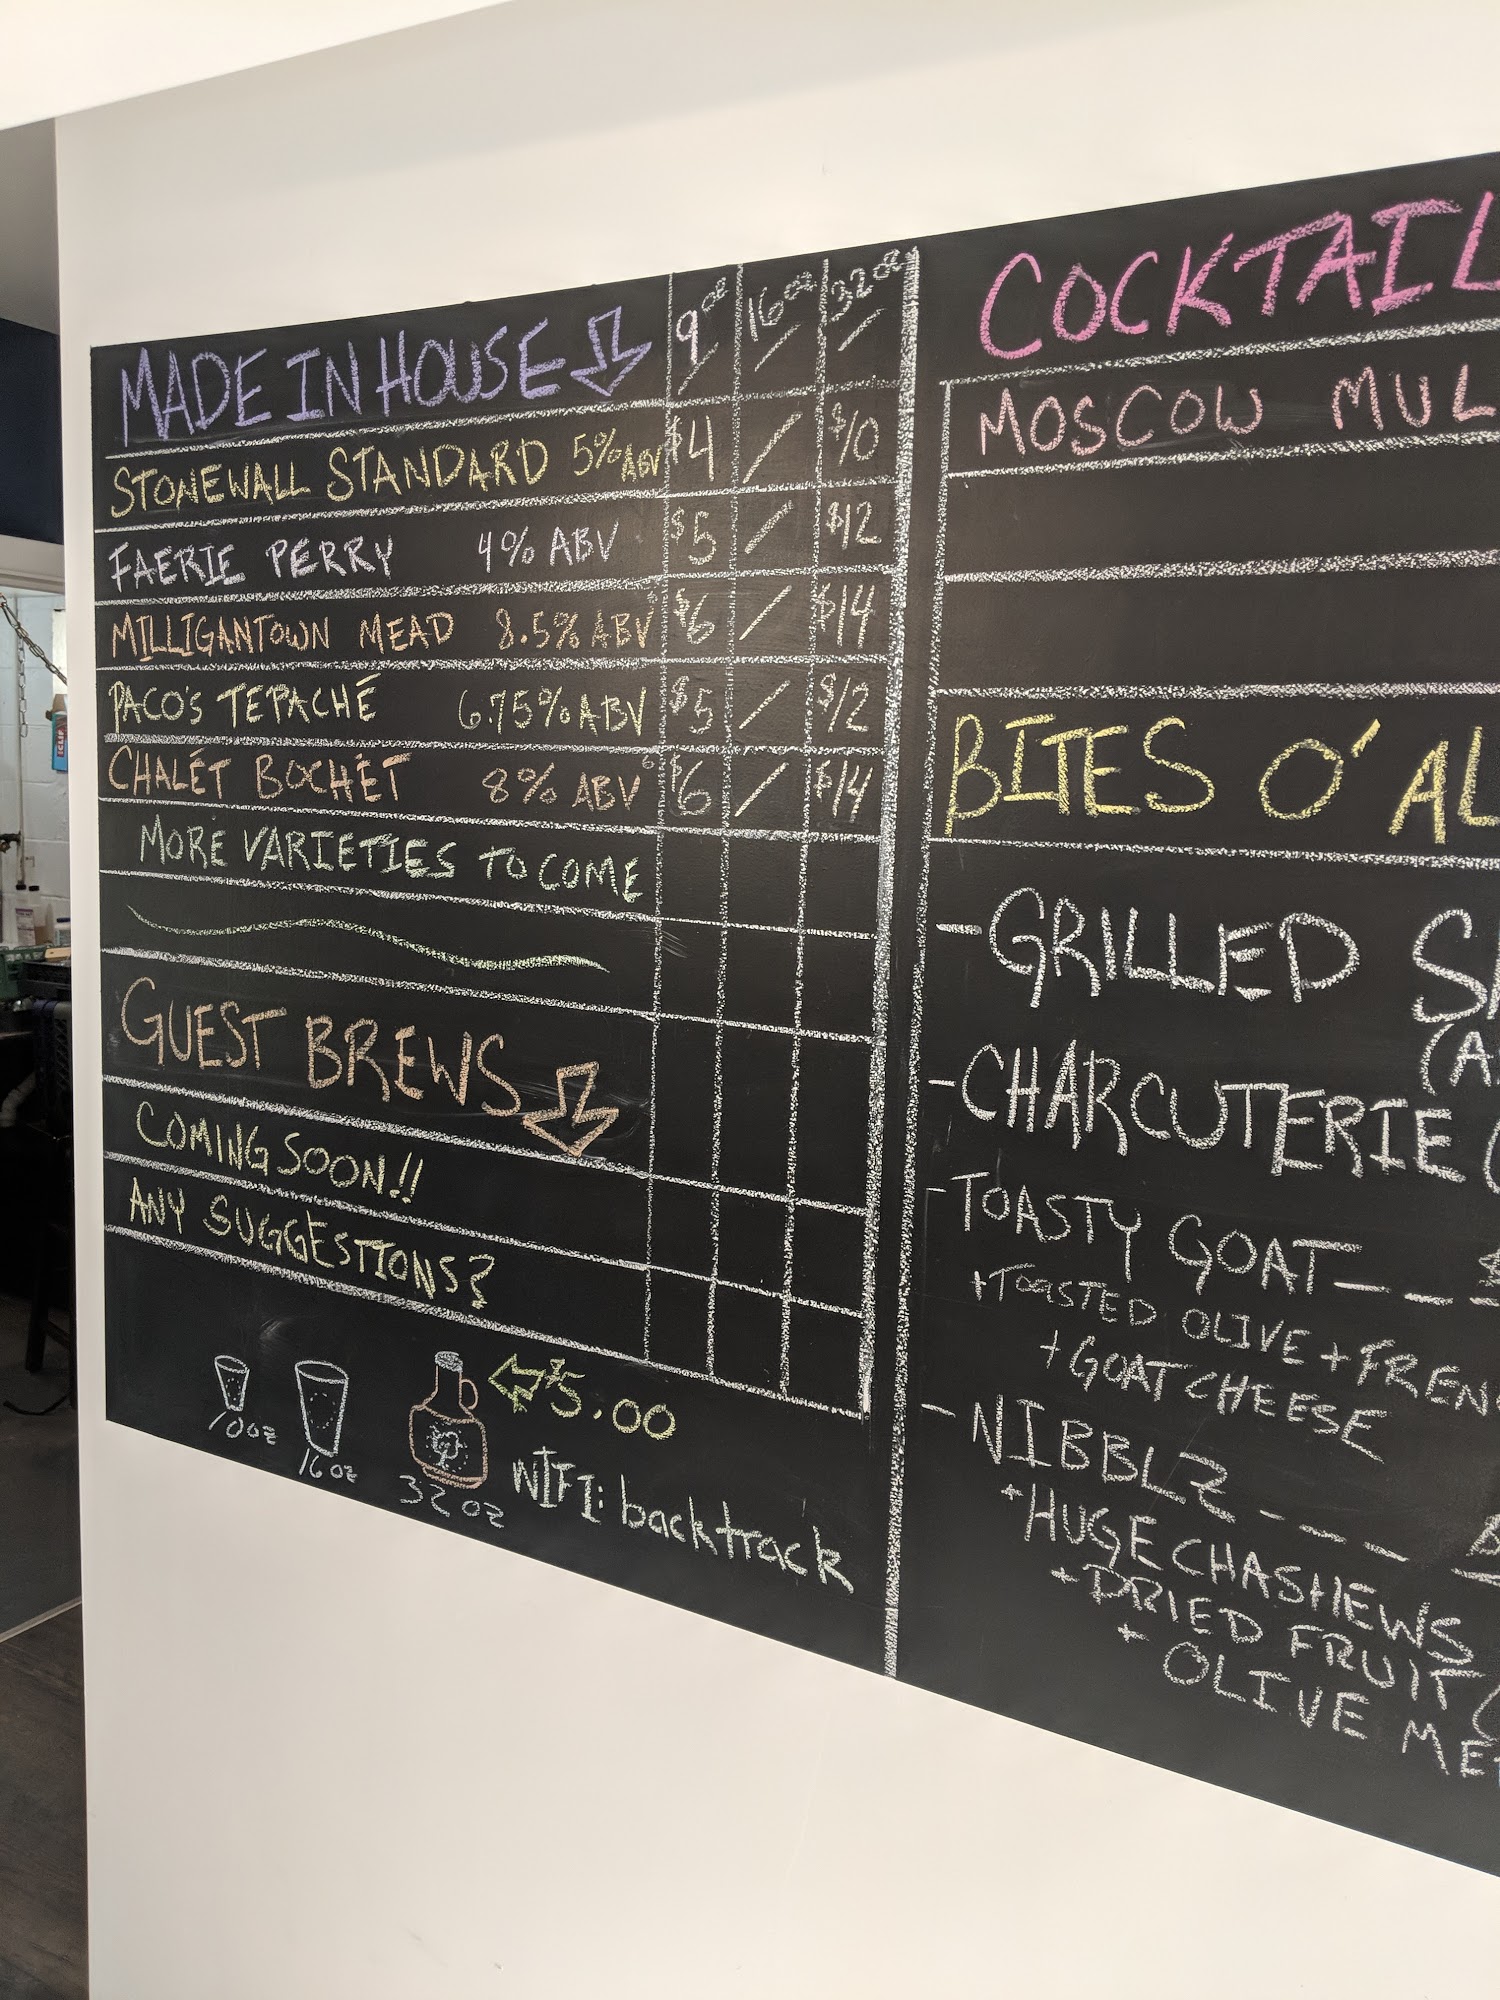 MADE IN HOUSE 9oz 16oz 32oz
STONEWALL STANDARD 5% ABV $4 / $10
FAERIE PERRY 4% ABV $5 / $12
MILLIGANTOWN MEAD 8.5% ABV $6 / $14
PACO'S TEPACHÉ 6.75% ABV $5 / $12
CHALÉT BOCHÉT 8% ABV $6 / $14
MORE VARIETIES TO COME
GUEST BREWS
COMING SOON!!
ANY SUGGESTIONS?
10oz
16oz
32oz
$5.00
WIFI: backtrack
COCKTAIL
MOSCOW MUL
BITES O' AL
-GRILLED
(A
-CHARCUTERIE (
-TOASTY GOAT---
+TOASTED OLIVE + FREN
+GOAT CHEESE
-NIBBLZ ----
+HUGE CHASHEWS
+DRIED FRUIT (
+OLIVE ME